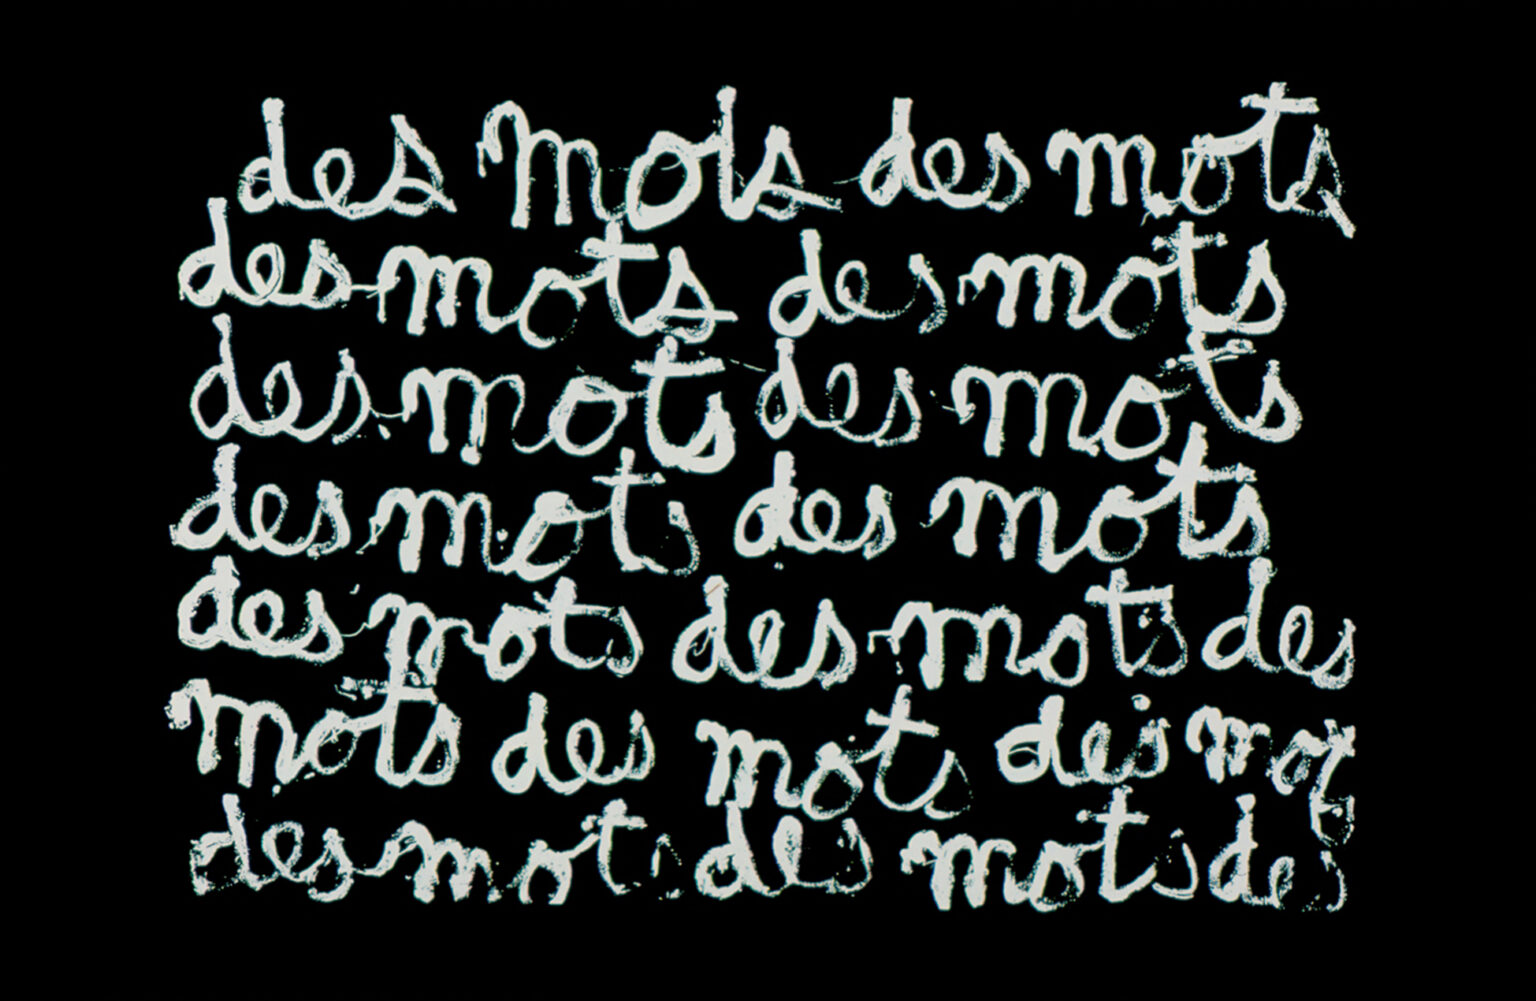 des mots des mots
des mots des mots
des mots des mots
des mots des mots
des mots des mots des
mots des mots des mots
des mots des mots des